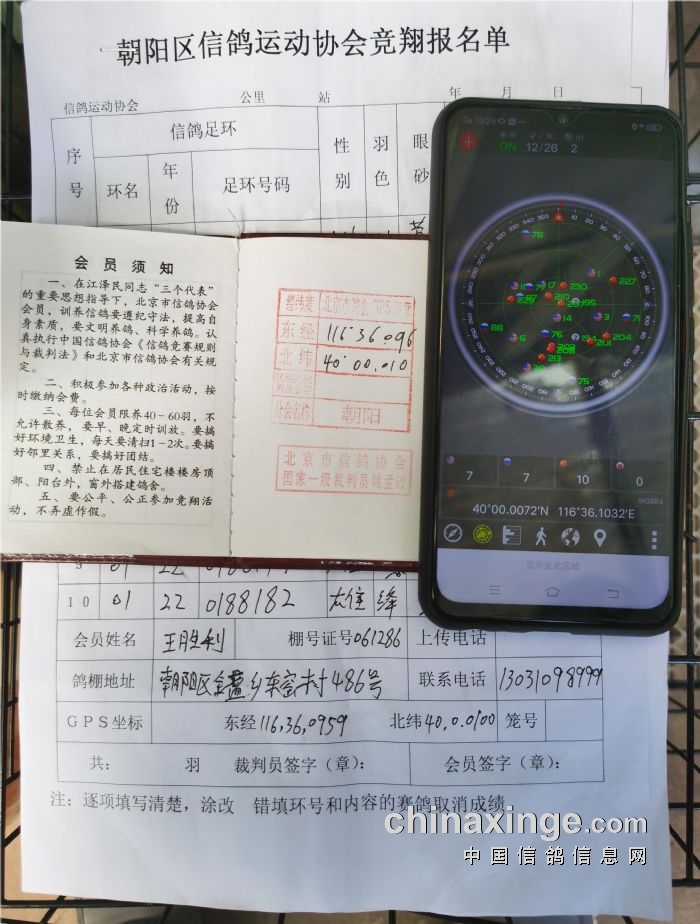 朝阳区信鸽运动协会竞翔报名单
信鸽运动协会 公里 站 年 月 日
序号 信鸽足环 性别 羽色 眼砂
环名 年份 足环号码
会员须知
一、在江泽民同志“三个代表”
的重要思想指导下，北京市信鸽协会
会员，训养信鸽要遵纪守法，提高自
身素质，要文明养鸽、科学养鸽。认
真执行中国信鸽协会《信鸽竞赛规则
与裁判法》和北京市信鸽协会有关规
定。
二、积极参加各种政治活动，按
时缴纳会费。
三、每位会员限养40－60羽，不
允许散养，要早、晚定时训放。要搞
好环境卫生，每天要清扫1－2次。要搞
好邻里关系，要搞好团结。
四、禁止在居民住宅楼楼房顶
部、阳台外，窗外搭建鸽舍。
五、要公平、公正参加竞翔活
动，不弄虚作假。
东经 116°36.096
北纬 40°00.010
分会名称 朝阳
北京市信鸽协会
国家一级裁判员
13:29
ON 12/26 2
7 7 10 0
WGS84
40°00.0072'N 116°36.1032'E
显示至此区域
10 01 22 0188182
会员姓名 王胜利 棚号证号061286 上传电话
鸽棚地址 朝阳区金盏乡东窑村486号 联系电话 13031098999
GPS坐标 东经116,36,0959 北纬40,0.0100 笼号
共： 羽 裁判员签字（章）： 会员签字（章）：
注：逐项填写清楚，涂改 错填环号和内容的赛鸽取消成绩
chinaxinge.com
中国信鸽信息网